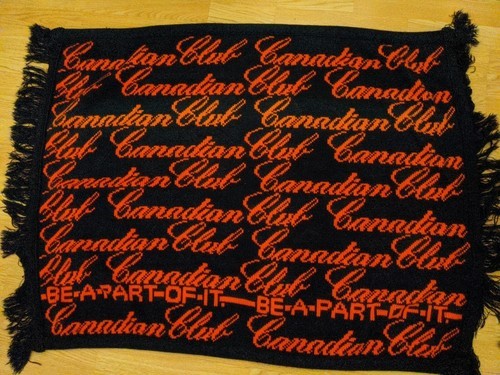 Canadian Club Canadian Club
Club Canadian Club Canadian
Canadian Club Canadian Club
Club Canadian Club Canadian
Canadian Club Canadian Club
Club Canadian Club Canadian
Canadian Club Canadian Club
Club Canadian Club Canadian
BE-A-PART-OF-IT BE-A-PART-OF-IT
Canadian Club Canadian Club